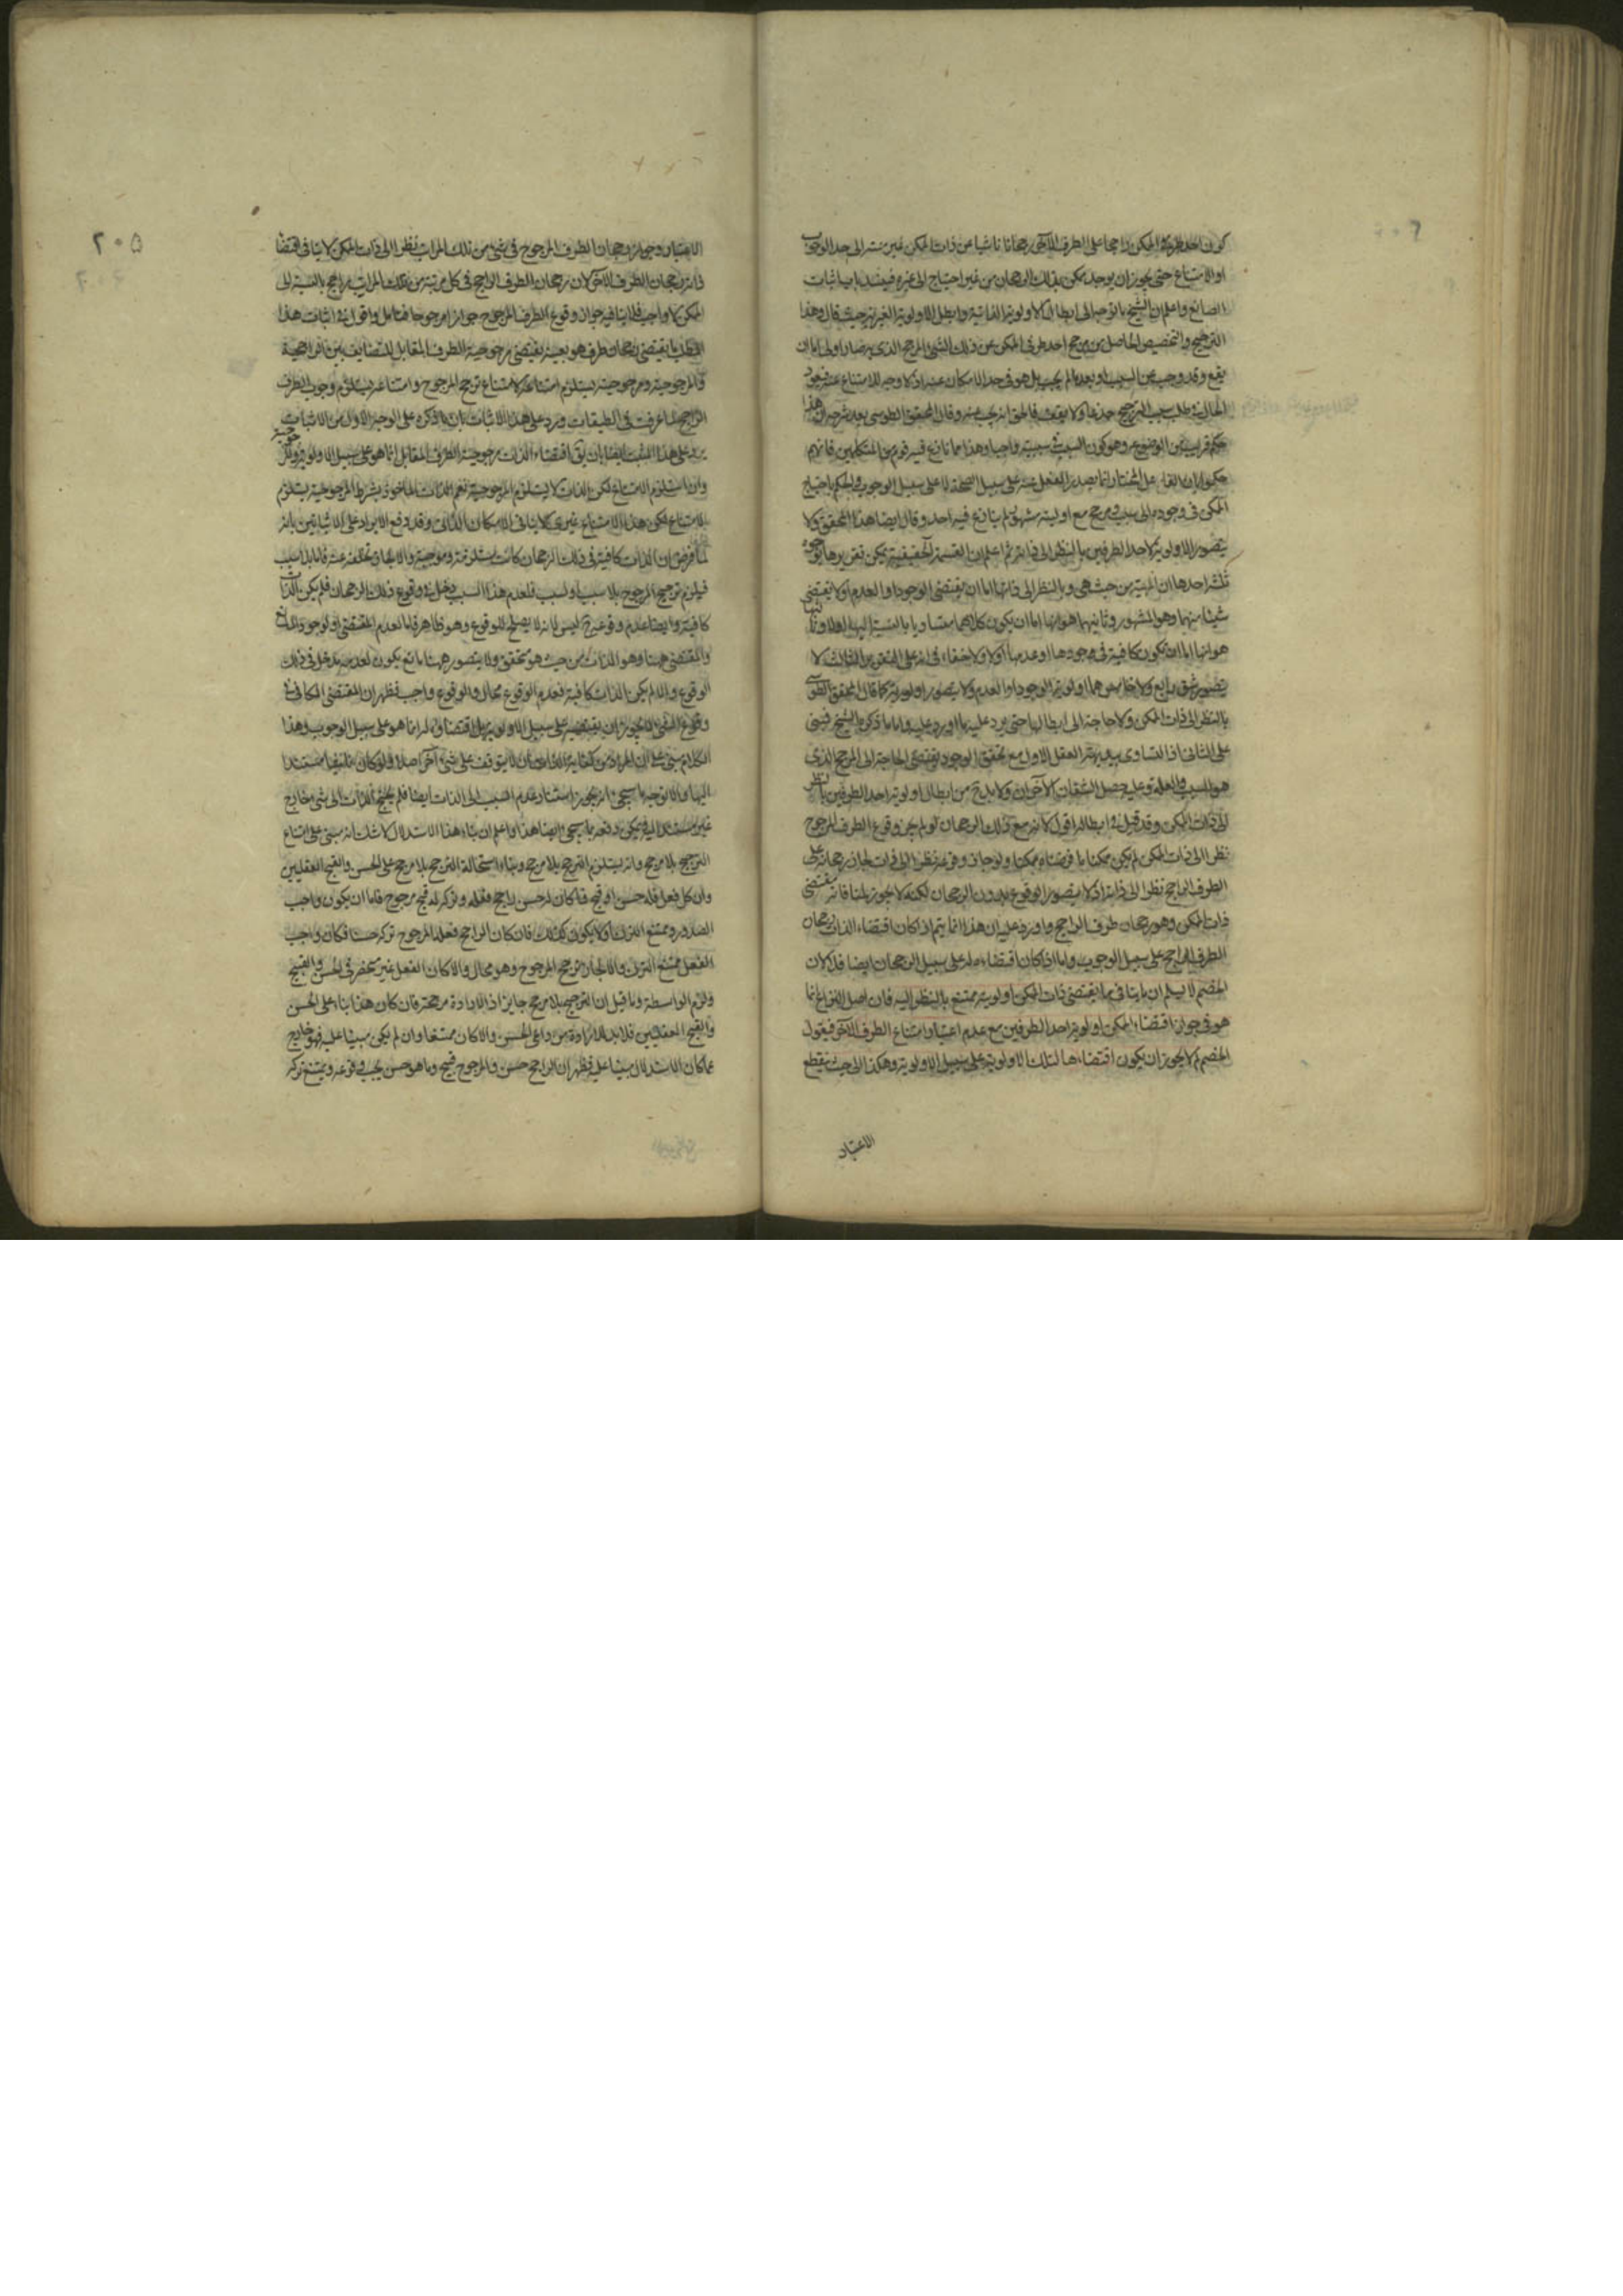 كون احد طرفى الممكن راجحا على الطرف الآخر رجحانا ناشيا عن ذات الممكن غير منته الى حد الوجوب
او الامتناع حتى يجوز ان يوجد ممكن بذلك الرجحان من غير احتياج الى غيره فينسد باب اثبات
الصانع واعلم ان الشيخ ما توجه الى ابطال الاولوية الذاتية وابطل الاولوية الغيرية حيث قال وهذا
الترجيح والتخصيص الحاصل من مرجح احد طرفى الممكن عن ذلك الشئ المرجح الذى به صار اولى اما ان
يقع وقد وجب عن السبب او بعد ما لم يجب بل هو فى حد الامكان عنه اذ لا وجه للامتناع عنه فيعود
الحال فى طلب سبب الترجيح جذعا ولا يقف فالحق انه يجب عنه وقال المحقق الطوسى بعد شرحه ان هذا
حكم قريب من الوضوح وهو كون السبب فى سببيته واجبا وهذا مما نازع فيه قوم من المتكلمين فانهم
حكموا بان الفاعل المختار انما يصدر الفعل عنه على سبيل الصحة لا على سبيل الوجوب والحكم باحتياج
الممكن فى وجوده الى سبب مرجح مع اوليته شهرته لم ينازع فيه احد وقال ايضا هذا المحقق ولا
يتصور الاولوية لاحد الطرفين بالنظر الى ذاته ثم اعلم ان القسمة الحقيقية يمكن تقريرها بوجوه
ثلثة احدها ان المهية من حيث هى وبالنظر الى ذاتها اما ان يقتضى الوجود او العدم اولا يقتضى
شيئا منهما وهو المشهور وثانيها هو انها اما ان يكون كلاهما متساويا بالنسبة اليها اولا وثالثها
هو انها اما ان تكون كافية فى وجودها او عدمها اولا ولا خفاء فى انه على التقرير الثالث لا
يتصور شق رابع ولا خامس هما اولوية الوجود او العدم ولا يتصور اولوية كما قال المحقق الطوسى
بالنظر الى ذات الممكن ولا حاجة الى ابطالها حتى يرد عليه ما اورد عليه واما ما ذكره الشيخ فمبنى
على الثانى اذ التساوى ببديهة العقل الاول مع تحقق الوجود يقتضى الحاجة الى المرجح الذى
هو السبب والعلة وعليه يحصل الشقان الآخران ولا بد ح من ابطال اولوية احد الطرفين بالنظر
الى ذات الممكن وقد قيل فى ابطاله اقول لانه مع ذلك الرجحان لو لم يجز وقوع الطرف المرجوح
نظرا الى ذات الممكن لم يكن ممكنا ما فرضناه ممكنا ولو جاز وقوعه نظرا الى ذاته لجاز رجحانه على
الطرف الراجح نظرا الى ذاته اذ لا يتصور الوقوع بدون الرجحان لكنه لا يجوز لمنافاته مقتضى
ذات الممكن وهو رجحان طرف الراجح واورد عليه ان هذا انما يتم اذا كان اقتضاء الذات رجحان
الطرف الراجح على سبيل الوجوب واما اذا كان اقتضاءه له على سبيل الرجحان ايضا فلا لان
الخصم لا يسلم ان ما ينافى ما يقتضى ذات الممكن اولويته ممتنع بالنظر اليه فان اصل النزاع انما
هو فى جواز اقتضاء الممكن اولوية احد الطرفين مع عدم اعتبار امتناع الطرف الآخر فيقول
الخصم لم لا يجوز ان يكون اقتضاءها لتلك الاولوية على سبيل الاولوية وهكذا الى حيث ينقطع
الاعتبار
٢٠٥
الاعتبار وجواز رجحان الطرف المرجوح فى شئ من تلك المراتب نظرا الى ذات الممكن لا ينافى اقتضاء
ذاته رجحان الطرف الآخر لان رجحان الطرف الراجح فى كل مرتبة من تلك المراتب راجح بالنسبة الى
الممكن لا واجب فلا ينافيه جواز وقوع الطرف المرجوح جوازا مرجوحا فتامل واقول فى اثبات هذا
المطلب ما يقتضى رجحان طرف هو بعينه يقتضى مرجوحية الطرف المقابل للتضايف بين الراجحية
والمرجوحية ومرجوحيته يستلزم امتناعه لامتناع ترجح المرجوح وامتناعه يستلزم وجوب الطرف
الراجح لما عرفت فى الطبقات ويرد على هذا الاثبات بان ما ذكره على الوجه الاول من الاثبات
يرد على هذا المثبت ايضا بان يق اقتضاء الذات مرجوحية الطرف المقابل انما هو على سبيل الاولوية والمرجوحية
وان استلزم الامتناع لكن الذات لا يستلزم المرجوحية نعم الذات الماخوذ بشرط المرجوحية يستلزم
الامتناع لكن هذا الامتناع غيرى لا ينافى الامكان الذاتى وقد دفع الايراد على الاثباتين بانه
لما فرض ان الذات كافية فى ذلك الرجحان كانت مستلزمة وموجبة والا لجاز تخلفه عنه فاما بلا سبب
فيلزم ترجيح المرجوح بلا سبب او لسبب فلعدم هذا السبب دخل فى وقوع ذلك الرجحان فلم يكن الذات
كافية وايضا عدم وقوعه ح ليس لانه لا يصلح للوقوع وهو ظاهر فاما لعدم المقتضى او لوجود المانع
والمقتضى ههنا وهو الذات من حيث هو متحقق ولا يتصور ههنا مانع يكون لعدمه مدخل فى ذلك
الوقوع والا لم يكن الذات كافية فعدم الوقوع محال والوقوع واجب فظهر ان المقتضى الكافى فى
وقوع الشئ لا يجوز ان يقتضيه على سبيل الاولوية بل اقتضاؤه له انما هو على سبيل الوجوب وهذا
الكلام مبنى على ان المراد من كفاية الذات ان لا يتوقف على شئ آخر اصلا ولو كان مستندا
اليها والا توجه ما سيجئ انه يجوز استناد عدم السبب الى الذات ايضا فلم يحتج الذات الى شئ خارج
غير مستند اليه فيمكن دفعه بما سيجئ ايضا هذا واعلم ان بناء هذا الاستدلال لا شك انه مبنى على امتناع
الترجيح بلا مرجح وانه يستلزم الترجح بلا مرجح وبناء استحالة الترجيح بلا مرجح على الحسن والقبح العقليين
وان كل فعل فله حسن او قبح فما كان له حسن راجح ففعله وتركه له قبح مرجوح فاما ان يكون واجب
الصدور وممتنع الترك اولا يكون كذلك فان كان الراجح فعله المرجوح تركه حسنا فكان واجب
الفعل ممتنع الترك والا لجاز ترجح المرجوح وهو محال والا كان الفعل غير منحصر فى الحسن والقبح
ولزم الواسطة وما قيل ان الترجيح بلا مرجح جايز اذ الارادة مرجحة فان كان هذا بناء على الحسن
والقبح العقليين فلا بد للارادة من داعى الحسن والا كان ممتنعا وان لم يكن مبنيا عليه فهو خارج
عما كان الاستدلال مبنيا عليه فظهر ان الراجح حسن والمرجوح قبح وما هو حسن يجب وقوعه ويمتنع تركه